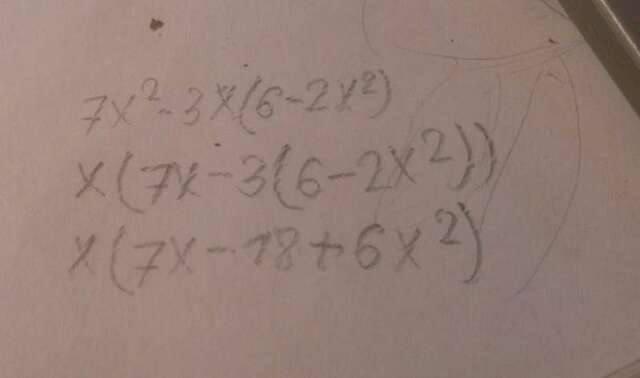 7x²-3x(6-2x²)
x(7x-3(6-2x²))
x(7x-18+6x²)